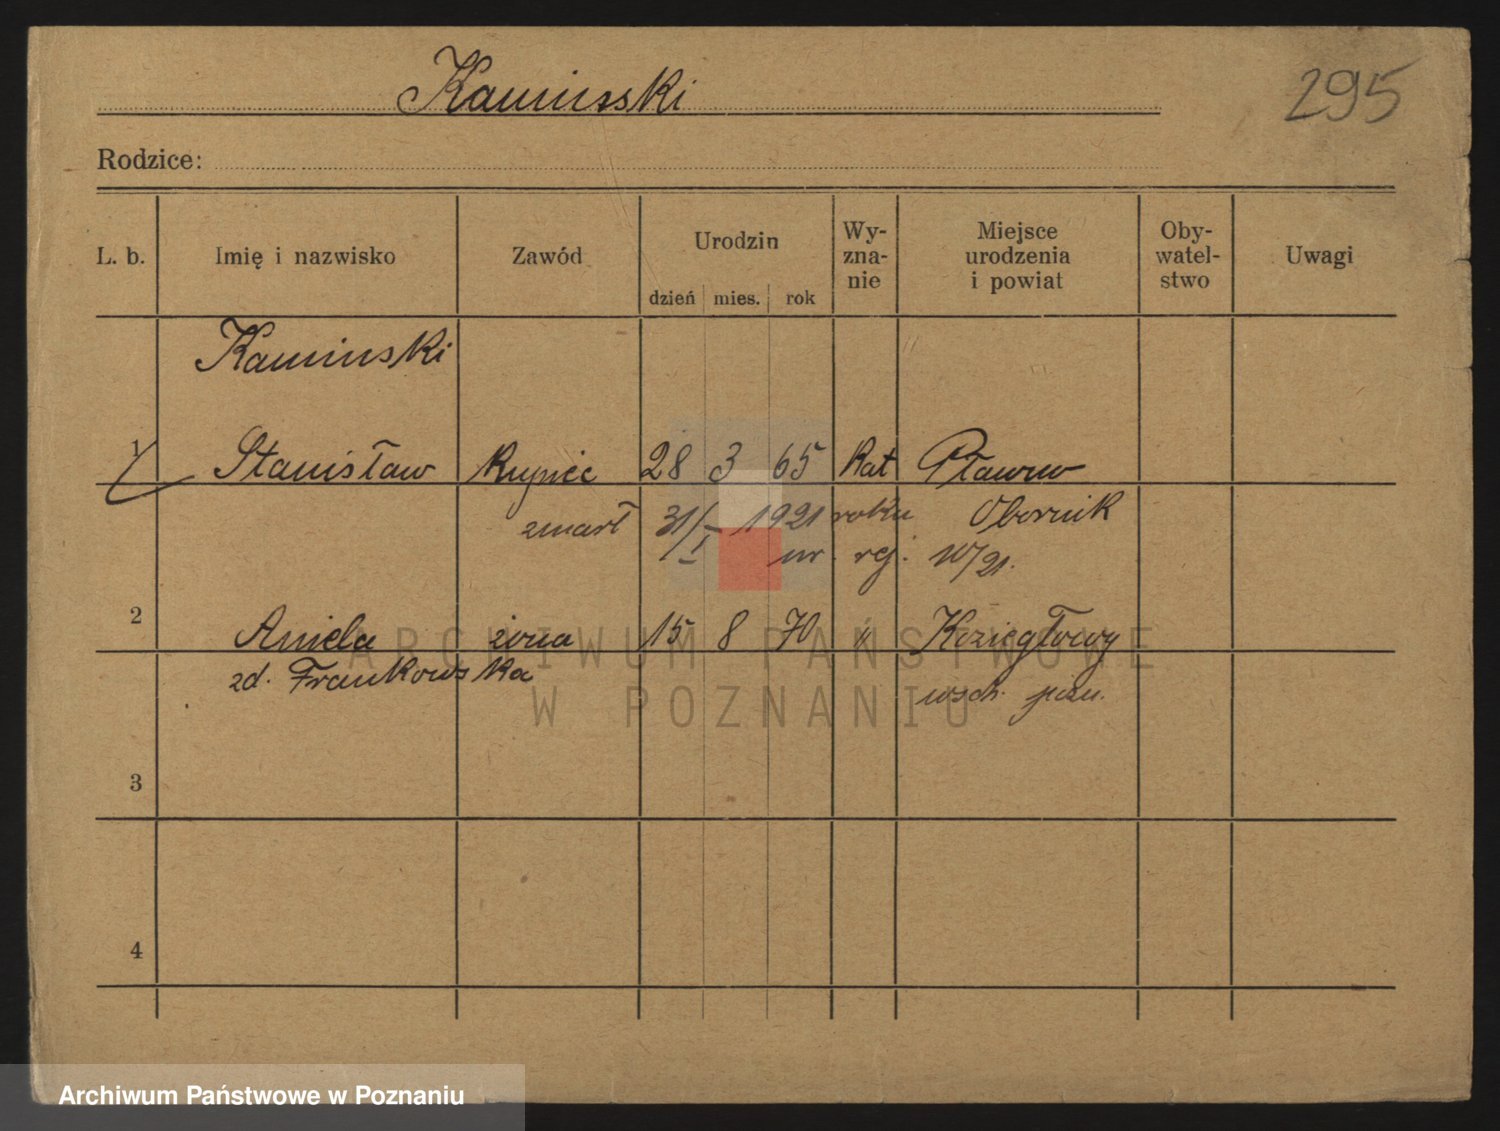 Kaminski
295
Rodzice:
L. b. Imię i nazwisko Zawód Urodzin Wy- Miejsce Oby- Uwagi
zna- urodzenia watel-
dzień mies. rok nie i powiat stwo
Kaminski
1 Stanisław kupiec 28 3 65 kat
zmarł 31/I 1921 roku Obornik
nr. rej. 10/21.
2 Aniela żona 15 8 70 " Koziegłowy
zd. Frankowska wsch. pozn.
3
4
ARCHIWUM PAŃSTWOWE
W POZNANIU
Archiwum Państwowe w Poznaniu